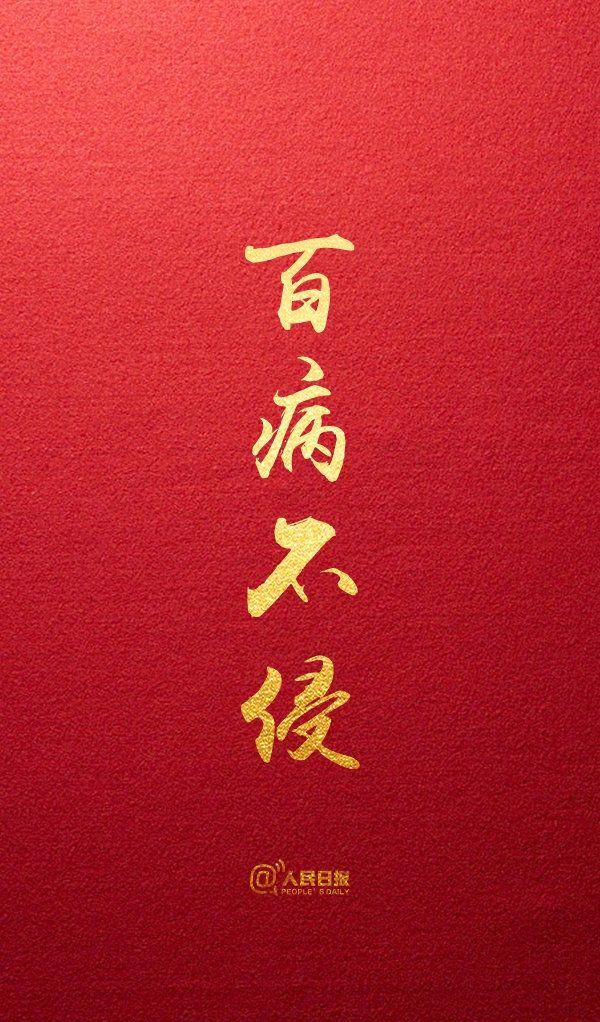 百病不侵
@人民日报
PEOPLE'S DAILY